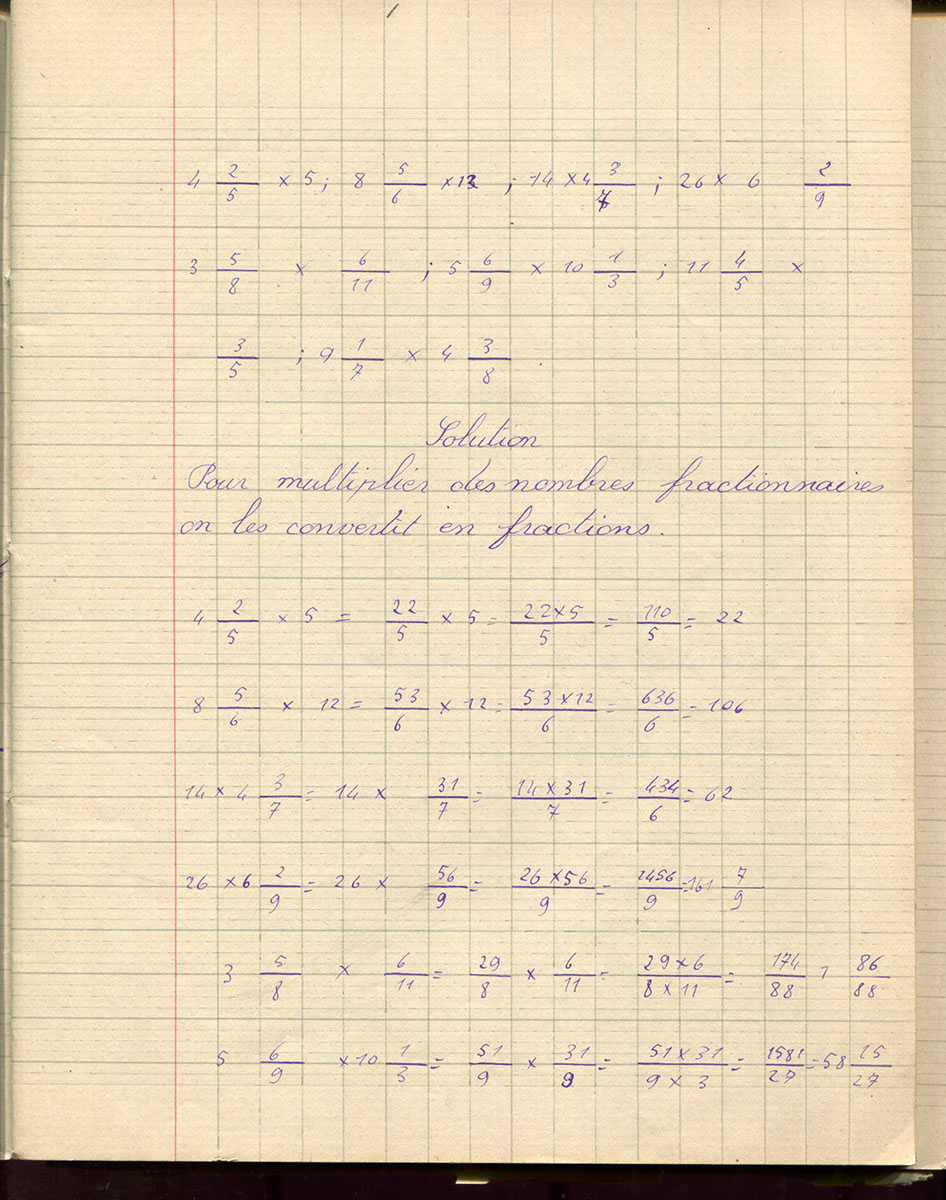 4 2/5 × 5 ; 8 5/6 × 12 ; 14 × 4 3/7 ; 26 × 6 2/9
3 5/8 × 6/11 ; 5 6/9 × 10 1/3 ; 11 4/5 ×
3/5 ; 9 1/7 × 4 3/8
Solution
Pour multiplier des nombres fractionnaires
on les convertit en fractions.
4 2/5 × 5 = 22/5 × 5 = 22×5/5 = 110/5 = 22
8 5/6 × 12 = 53/6 × 12 = 53×12/6 = 636/6 = 106
14 × 4 3/7 = 14 × 31/7 = 14×31/7 = 434/6 = 62
26 × 6 2/9 = 26 × 56/9 = 26×56/9 = 1456/9 = 161 7/9
3 5/8 × 6/11 = 29/8 × 6/11 = 29×6/8×11 = 174/88 1 86/88
5 6/9 × 10 1/3 = 51/9 × 31/9 = 51×31/9×3 = 1581/27 = 58 15/27